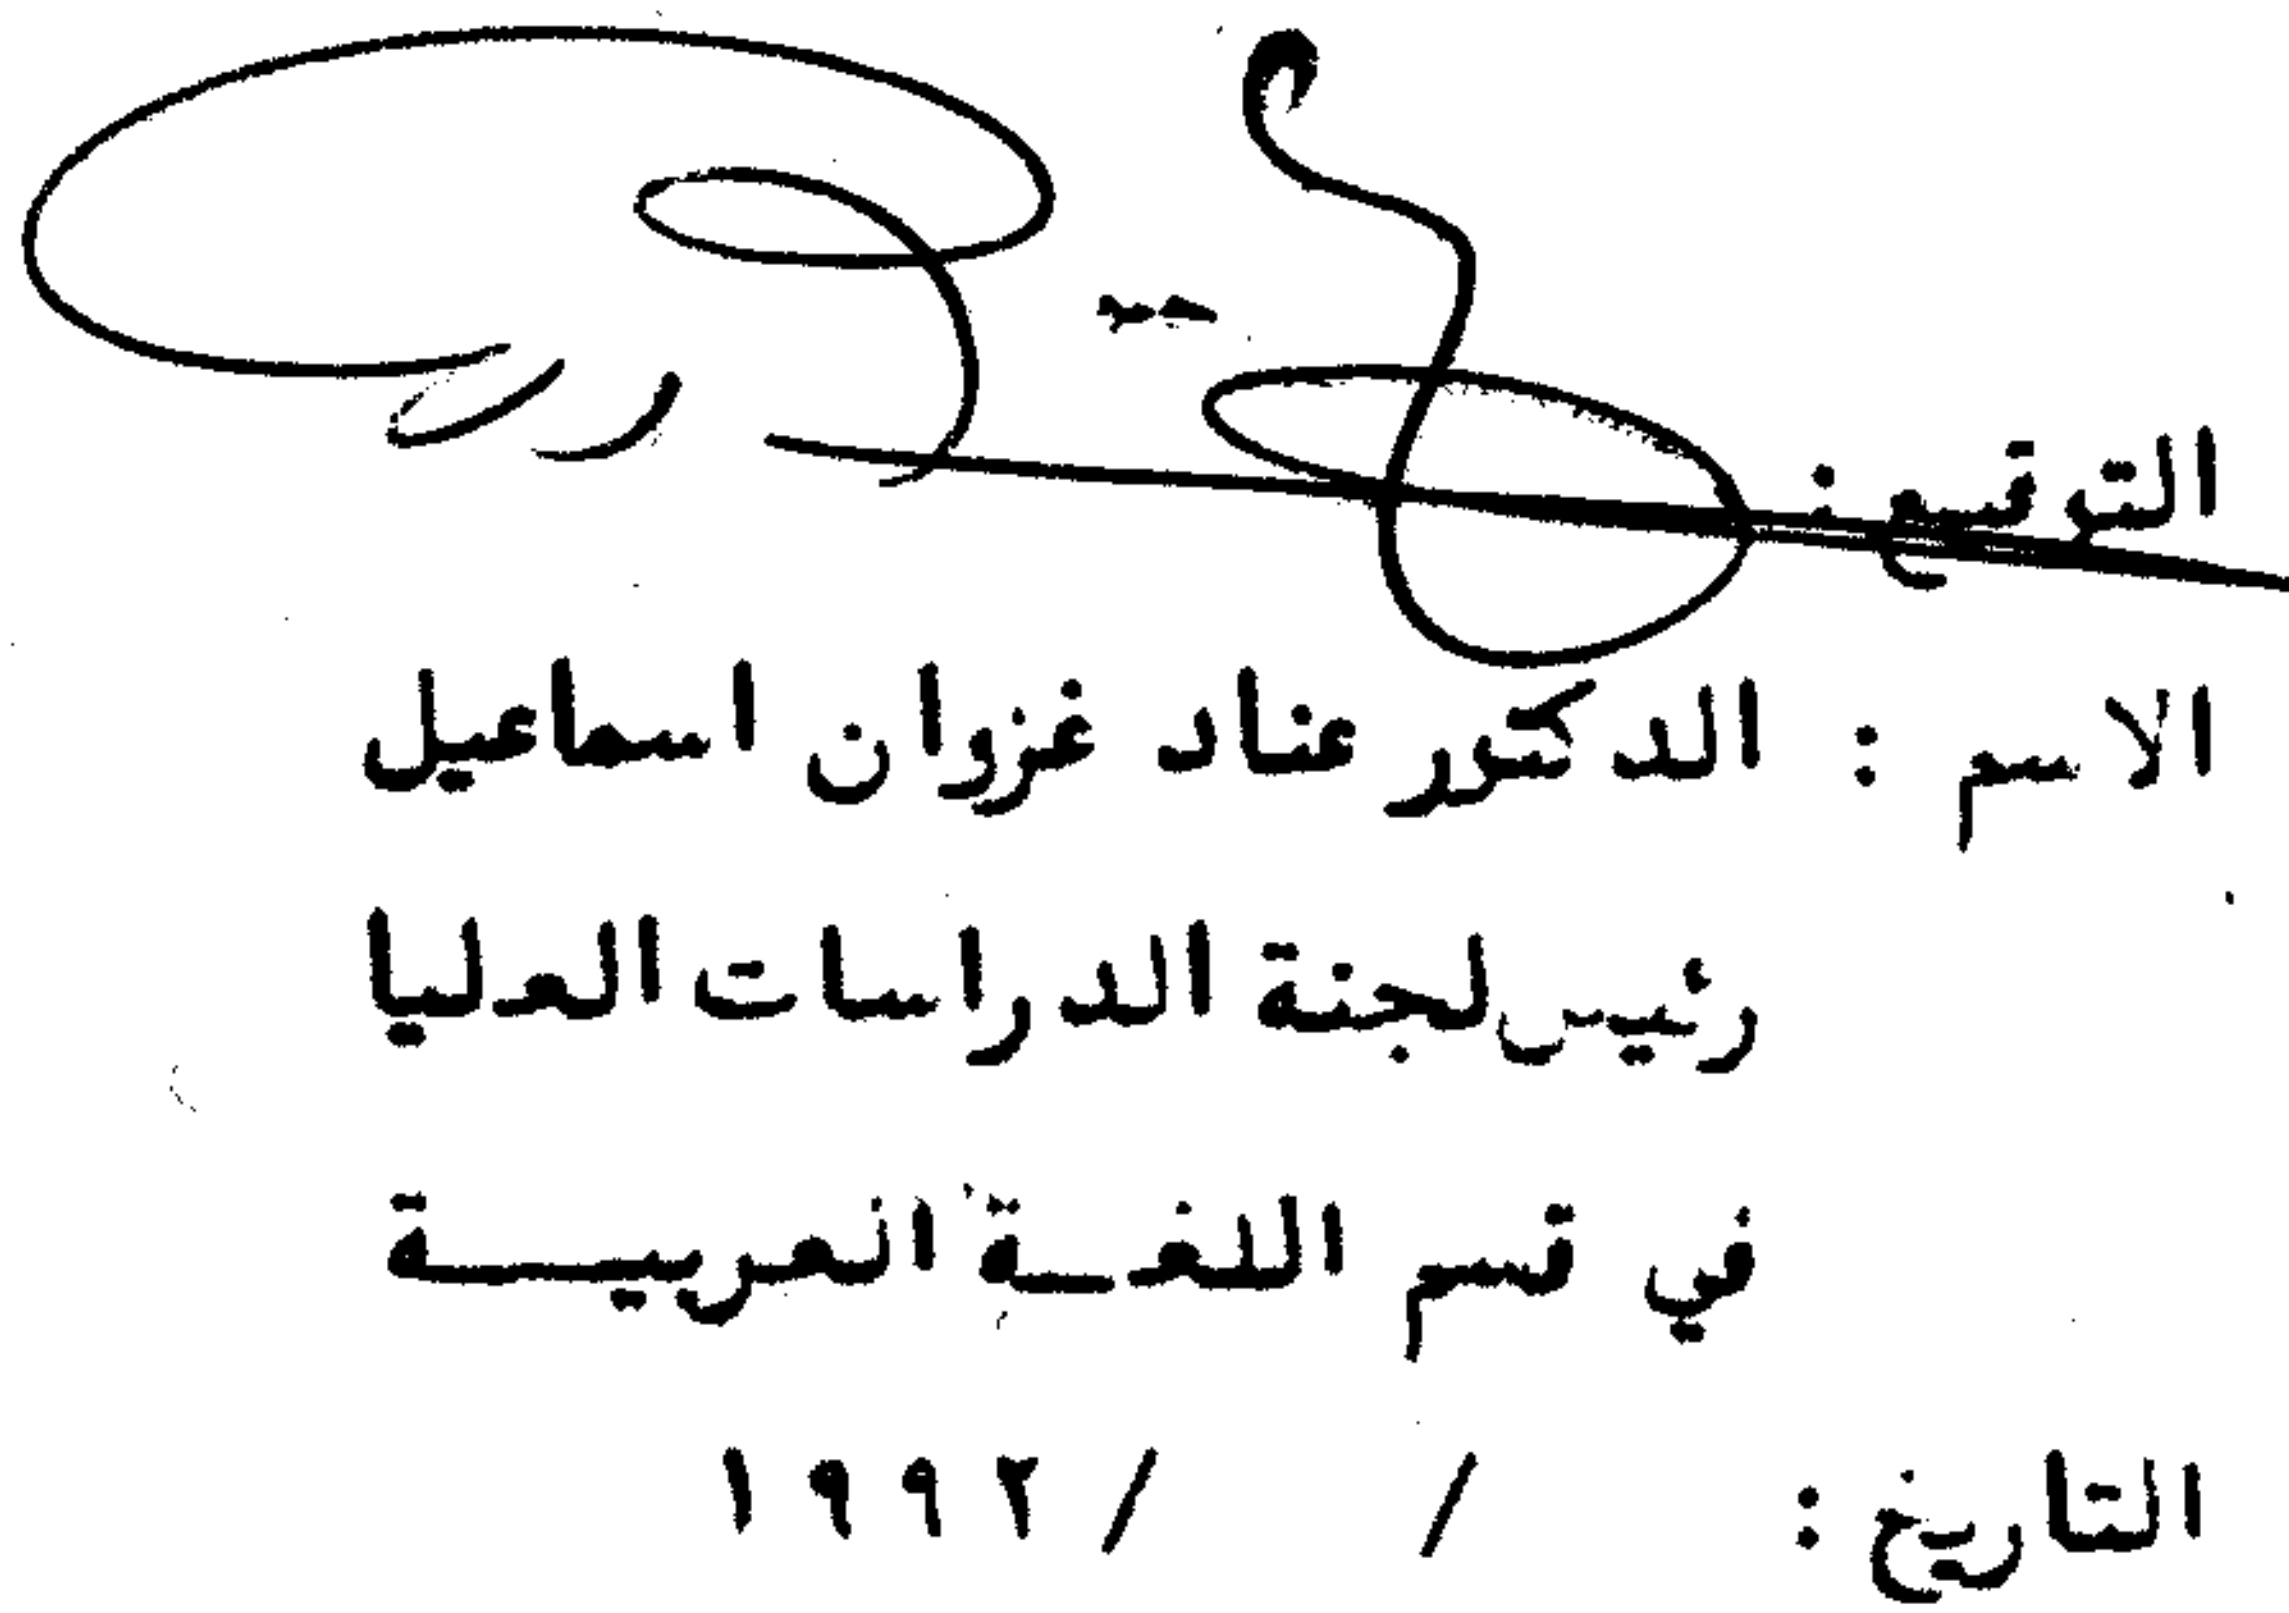 التوقيع :
الاسم : الدكتور عناد غزوان اسماعيل
رئيس لجنة الدراسات العليا
في قسم اللغة العربية
التاريخ : / / ١٩٩٢